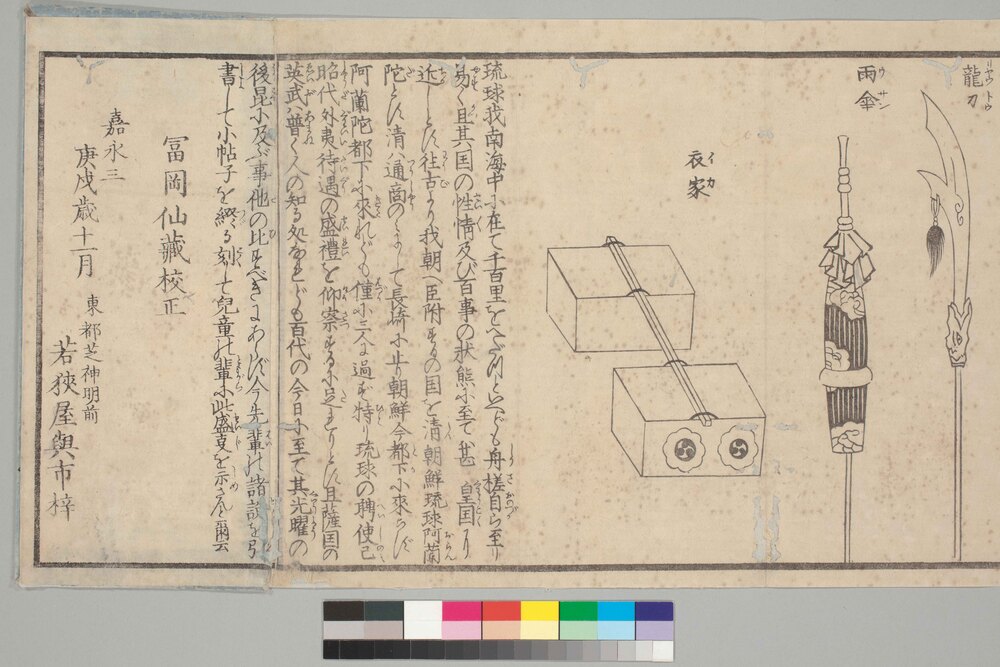 龍刀
リヤウトウ
雨傘
ウサン
衣家
イカ
琉球我南海中に在て千百里をへだつといへども舟槎自ら至り
易く且其国の性情及び百事の状態に至て甚 皇国に
近しとす往古より我朝へ臣附するの国を清朝鮮琉球阿蘭
陀とす清ハ通商のミにて長崎に止り朝鮮今都下に来らず
阿蘭陀都下に来れども僅に三人に過ず特り琉球の聘使已
昭代外夷待遇の盛禮を仰察するに足れりとす且薩国の
英武ハ普く人の知る処なれども百代の今日に至て其光曜の
後昆に及ぶ事他の比すべきにあらず今先輩の諸説を引
書して小帖子を綴る刻して兒童の輩に此盛事を示さん爾云
冨岡仙藏校正
嘉永三
庚戌歳十一月
東都芝神明前
若狹屋與市梓